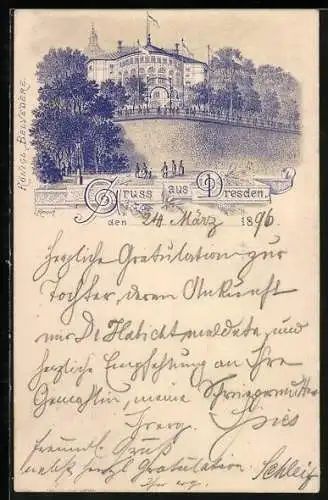 KÖNIGL. BELVEDERE.
Gruss aus Dresden.
den 24 März 1896.
Herzliche Gratulation zur
Tochter, deren Ankunft
mir Dr Habicht meldete, und
herzliche Empfehlung an Ihre
Gemahlin, meine
Ihr erg.
freundl. Gruß
nebst herzl. Gratulation
Ihr erg.